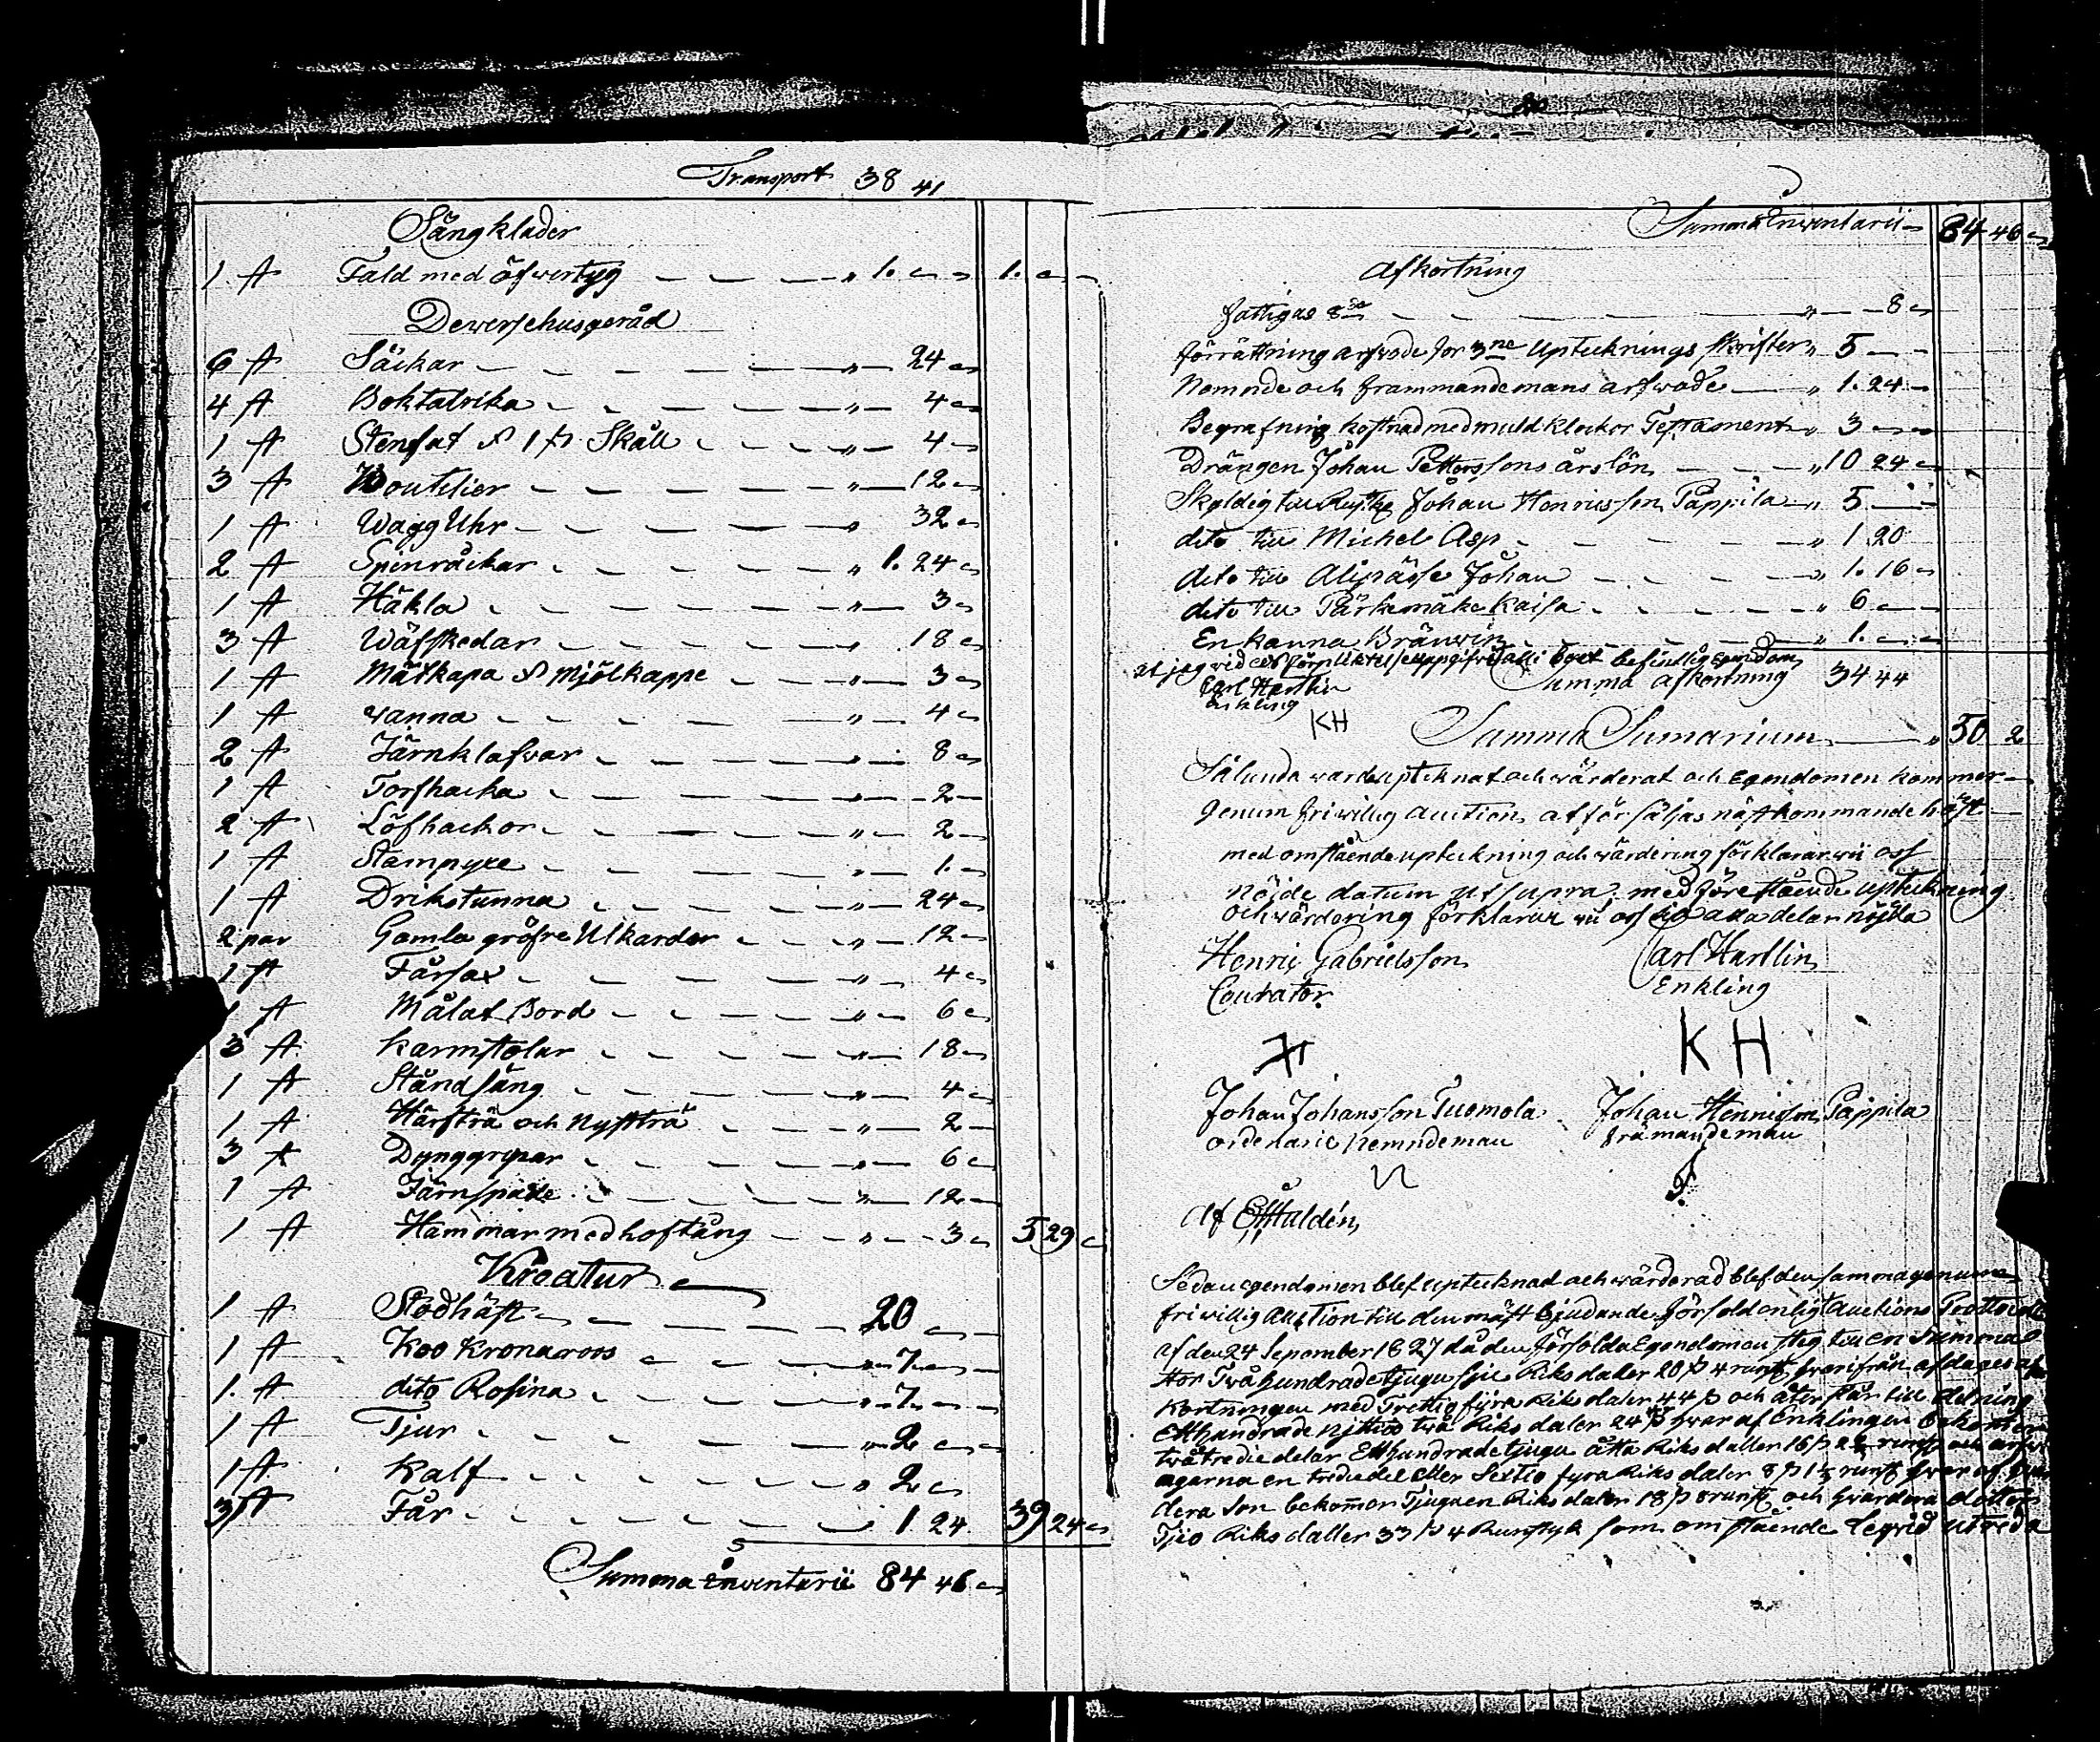 Transport 38 41
Sängklader
1 st Fald med öfwertyg " 1. 1.
Dewersehusgeråd
6 st Säckar " 24
4 st Boktalrika " 4
1 st Stenfat & 1 st Skåll " 4
3 st Boutelier " 12
1 st Wägg Uhr " 32
2 st Spinråckar " 1. 24
1 st Häkla " 3
3 st Wäfskedar " 18
1 st Mätkapa & Mjölkappe " 3
1 st vanna " 4
2 st Järnklafvar " 8
1 st Torfhacka 2
2 st Löfhackor " 2
1 st " 1.
1 st Drikstunna " 24
2 par Gamla gröfre Ulkardor " 12
1 st Fårsax " 4
1 st Målat Bord " 6
3 st Karmstolar " 18
1 st Ståndsäng " 4
1 st Härfträ och Nystträ " 2
3 st Dynggripar " 6
1 st Järnspade " 12
1 st Hammar med hoftång " 3 5 29
Kreatur
1 st Stodhäst " 20
1 st Koo Kronaroos " 7
1. st dito Rosina " 7
1 st Tjur " 2
1 st Kalf " 2
3 st Får 1 24 39 24
Summa Inventarii 84 46
Summa Inventarii 84 46
Afkortning
fattigas " 8
förrättning arfwode for 3ne Uptecknings skrifter " 5
Nemnde och frammandemans arfwode " 1. 24
Begrafning kostnad med muld klockor Testament " 3
Drängen Johan Pettersons årslön " 10 24
Skyldig till Johan Henricsson Pappila " 5
dito till Michel Asp " 1 20
dito till Johan " 1. 16
dito till Kaisa " 6
En kanna Bränwin " 1.
at jag vid förpliktelse uppgifvit allt boet befintlig egendom
Carl Hartlin Summa afkortning 34 44
Enkling
KH
Summa Sumarium " 50 2
Sålunda warde uptecknat och wärderat och Egendomen kommer
Genum friwillig auction at försäljas nästkommande höst
med omstående upteckning och wärdering förklarar wii oss
Nöjde datum ut supra. med föreståede upteckning
och wärdering förklarar wii oss alla delar nöjda
Henric Gabrielsson Carl Hartlin
Courator Enkling
KH
Johan Johansson Tuomola Johan Hennisson Pappila
ordenarie Nemndeman främandeman
Af Haldén
Sedan egendomen blef uptecknad och wärderad blef den samma genum
friwillig Auction till den mäst bjudande försold enligt Auctions
af den 24 Sepember 1827 då den försolda Egendomen steg till en Summa
stor Twåhundrade tjugu sju Riksdaler 20 s 4 runst hwarifrån afdages af
kortningen med Trettio fyra Riksdaler 44 s och åter står till delning
Etthundrade nittio två Riksdaler 24 s hwar af Enklingen bekomer
två tredie delar Etthundrade tjugu åtta Riksdaller 16 s runst och arfw
agarna en trediedel eller Sextio fyra Riksdaler 8 s runst hwar af
dera Son bekommer Tjuguen Riksdaler 18 s 8 runst och hwardera dotter
Tjio Riksdaller 33 s 4 Runstyk som omstående utreda